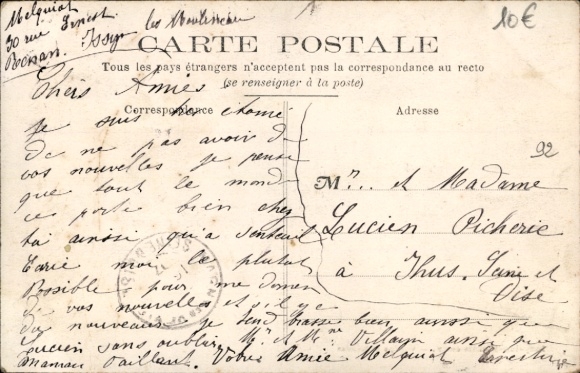 Melquiot
30 rue Ernest
Renan. Issy les Moulineaux
10€
CARTE POSTALE
Tous les pays étrangers n'acceptent pas la correspondance au recto
(se renseigner à la poste)
Chers Amies
Correspondance
Adresse
92
Je suis
de ne pas avoir de
vos nouvelles Je pense
que tout le monde
ce porte bien chez
toi ainsi qu'a
moi le plutot
Possible pour me donner
de vos nouvelles et
du nouveaux Je
bien ainsi que
Lucien sans oublier Mr et Me Villain ainsi que
maman Vaillant. Votre Amie Melquiot
Mr... et Madame
Lucien Picherie
à Thus. Seine et
Oise